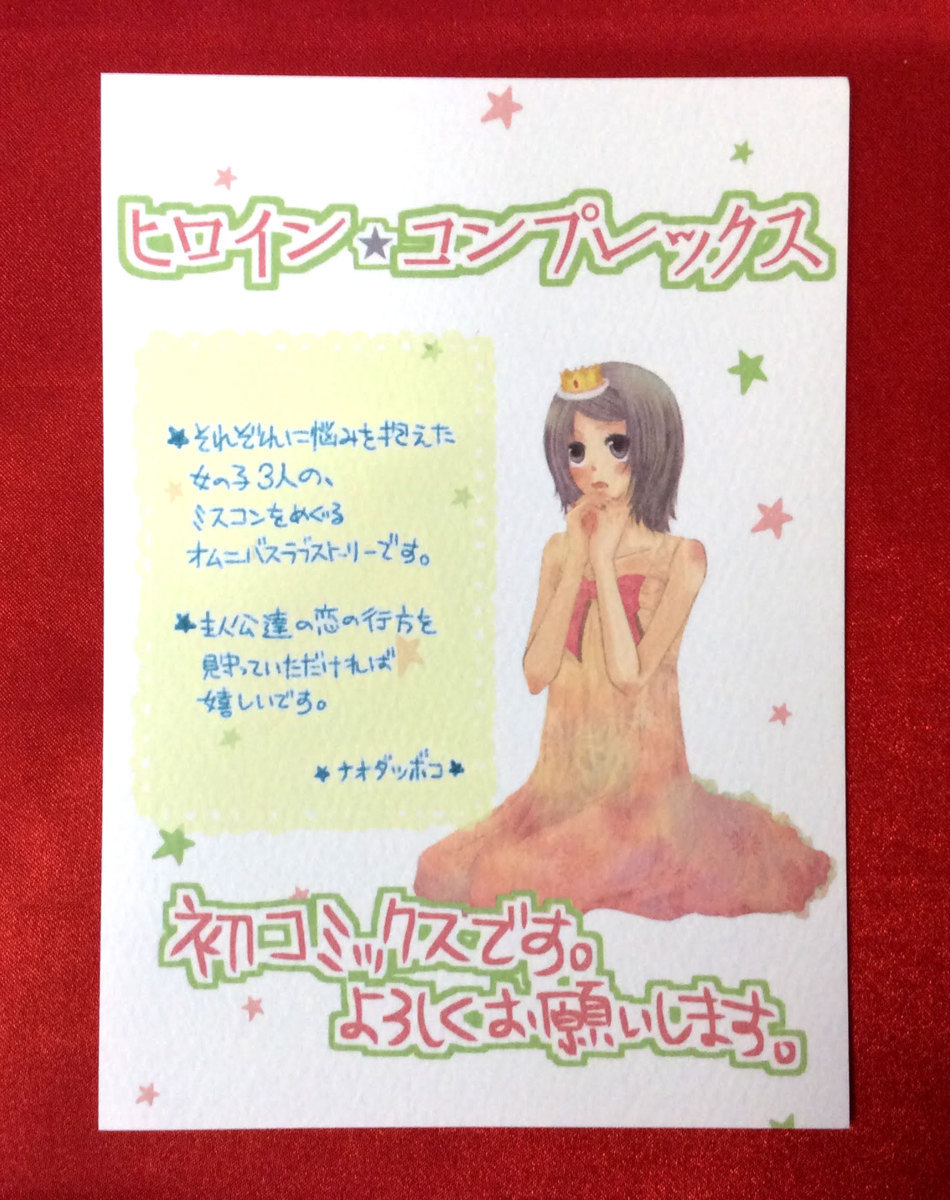 ヒロイン★コンプレックス
★それぞれに悩みを抱えた
女の子3人の、
ミスコンをめぐる
オムニバスラブストーリーです。
★主人公達の恋の行方を
見守っていただければ
嬉しいです。
★ナオダツボコ★
初コミックスです。
よろしくお願いします。